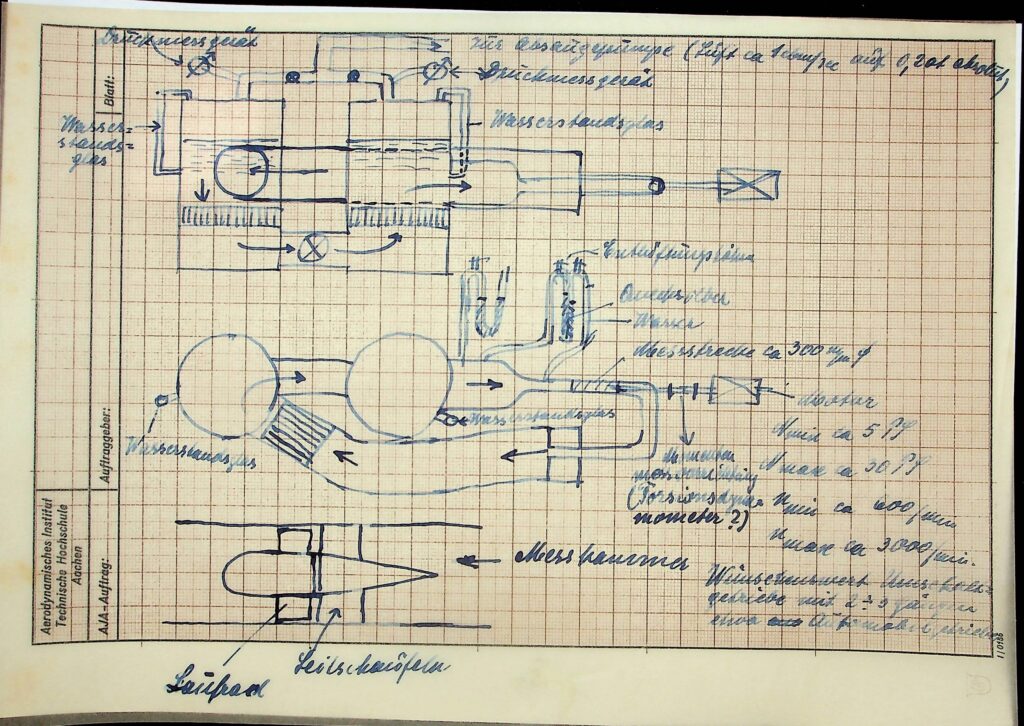 Druckmessgerät
zur Absaugepumpe (Luft ca auf 0,2 at absolut)
Druckmessgerät
Blatt:
Wasser=
stands=
glas
Wasserstandsglas
Entlüftung
Quecksilber
Wasser
Messstrecke ca 300 mm φ
Motor
Wasserstandsglas
Wasserstandsglas
Auftraggeber:
N min ca 5 PS
N max ca 30 PS
Momenten
(Torsionsdyna=
mometer ?)
n min ca 600/min
n max ca 3000/min.
Messkammer
Wünschenswert
getriebe mit 2 ÷ 3 Gängen
etwa Automobilgetriebe
Leitschaufeln
Laufrad
Aerodynamisches Institut
Technische Hochschule
Aachen
AJA-Auftrag:
1/0136